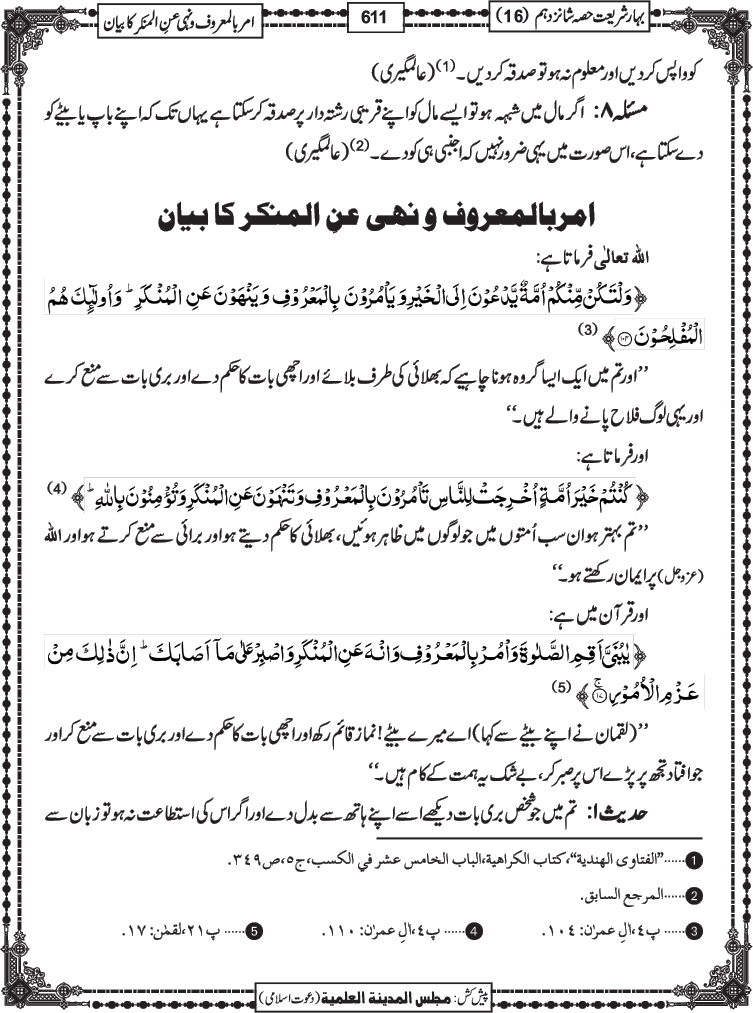 بہارِ شریعت حصہ شانزدہم (16)
611
امر بالمعروف ونہی عن المنکر کا بیان
کو واپس کردیں اور معلوم نہ ہو تو صدقہ کردیں۔(1) (عالمگیری)
مسئلہ ۸: اگر مال میں شبہہ ہو تو ایسے مال کو اپنے قریبی رشتہ دار پر صدقہ کرسکتا ہے یہاں تک کہ اپنے باپ یا بیٹے کو
دے سکتا ہے، اس صورت میں یہی ضرور نہیں کہ اجنبی ہی کو دے۔(2) (عالمگیری)
امر بالمعروف و نھی عنِ المنکر کا بیان
اللہ تعالٰی فرماتا ہے:
﴿ وَلْتَكُنْ مِّنْكُمْ اُمَّةٌ یَّدْعُوْنَ اِلَى الْخَیْرِ وَ یَاْمُرُوْنَ بِالْمَعْرُوْفِ وَ یَنْهَوْنَ عَنِ الْمُنْكَرِ ؕ وَ اُولٰٓىِٕكَ هُمُ
الْمُفْلِحُوْنَ ۝۱۰۴ ﴾ (3)
’’اور تم میں ایک ایسا گروہ ہونا چاہیے کہ بھلائی کی طرف بلائے اور اچھی بات کا حکم دے اور بری بات سے منع کرے
اور یہی لوگ فلاح پانے والے ہیں۔‘‘
اور فرماتا ہے:
﴿ كُنْتُمْ خَیْرَ اُمَّةٍ اُخْرِجَتْ لِلنَّاسِ تَاْمُرُوْنَ بِالْمَعْرُوْفِ وَ تَنْهَوْنَ عَنِ الْمُنْكَرِ وَ تُؤْمِنُوْنَ بِاللّٰهِ ؕ ﴾ (4)
’’تم بہتر ہو ان سب اُمتوں میں جو لوگوں میں ظاہر ہوئیں، بھلائی کا حکم دیتے ہو اور برائی سے منع کرتے ہو اور اللہ
(عزوجل) پر ایمان رکھتے ہو۔‘‘
اور قرآن میں ہے:
﴿ یٰبُنَیَّ اَقِمِ الصَّلٰوةَ وَ اْمُرْ بِالْمَعْرُوْفِ وَ انْهَ عَنِ الْمُنْكَرِ وَ اصْبِرْ عَلٰى مَاۤ اَصَابَكَ ؕ اِنَّ ذٰلِكَ مِنْ
عَزْمِ الْاُمُوْرِۚ ۝۱۷ ﴾ (5)
’’(لقمان نے اپنے بیٹے سے کہا) اے میرے بیٹے! نماز قائم رکھ اور اچھی بات کا حکم دے اور بری بات سے منع کر اور
جو افتاد تجھ پر پڑے اس پر صبر کر، بے شک یہ ہمت کے کام ہیں۔‘‘
حدیث ۱: تم میں جو شخص بری بات دیکھے اسے اپنے ہاتھ سے بدل دے اور اگر اس کی استطاعت نہ ہو تو زبان سے
1 ......"الفتاوی الھندیة"، کتاب الکراھیة، الباب الخامس عشر في الکسب، ج۵، ص۳۴۹.
2 ......المرجع السابق.
3 ...... پ٤، اٰل عمرٰن: ۱۰٤. 4 ...... پ٤، اٰل عمرٰن: ۱۱۰. 5 ...... پ۲۱، لقمٰن: ۱۷.
پیش کش: مجلس المدینة العلمیة (دعوت اسلامی)